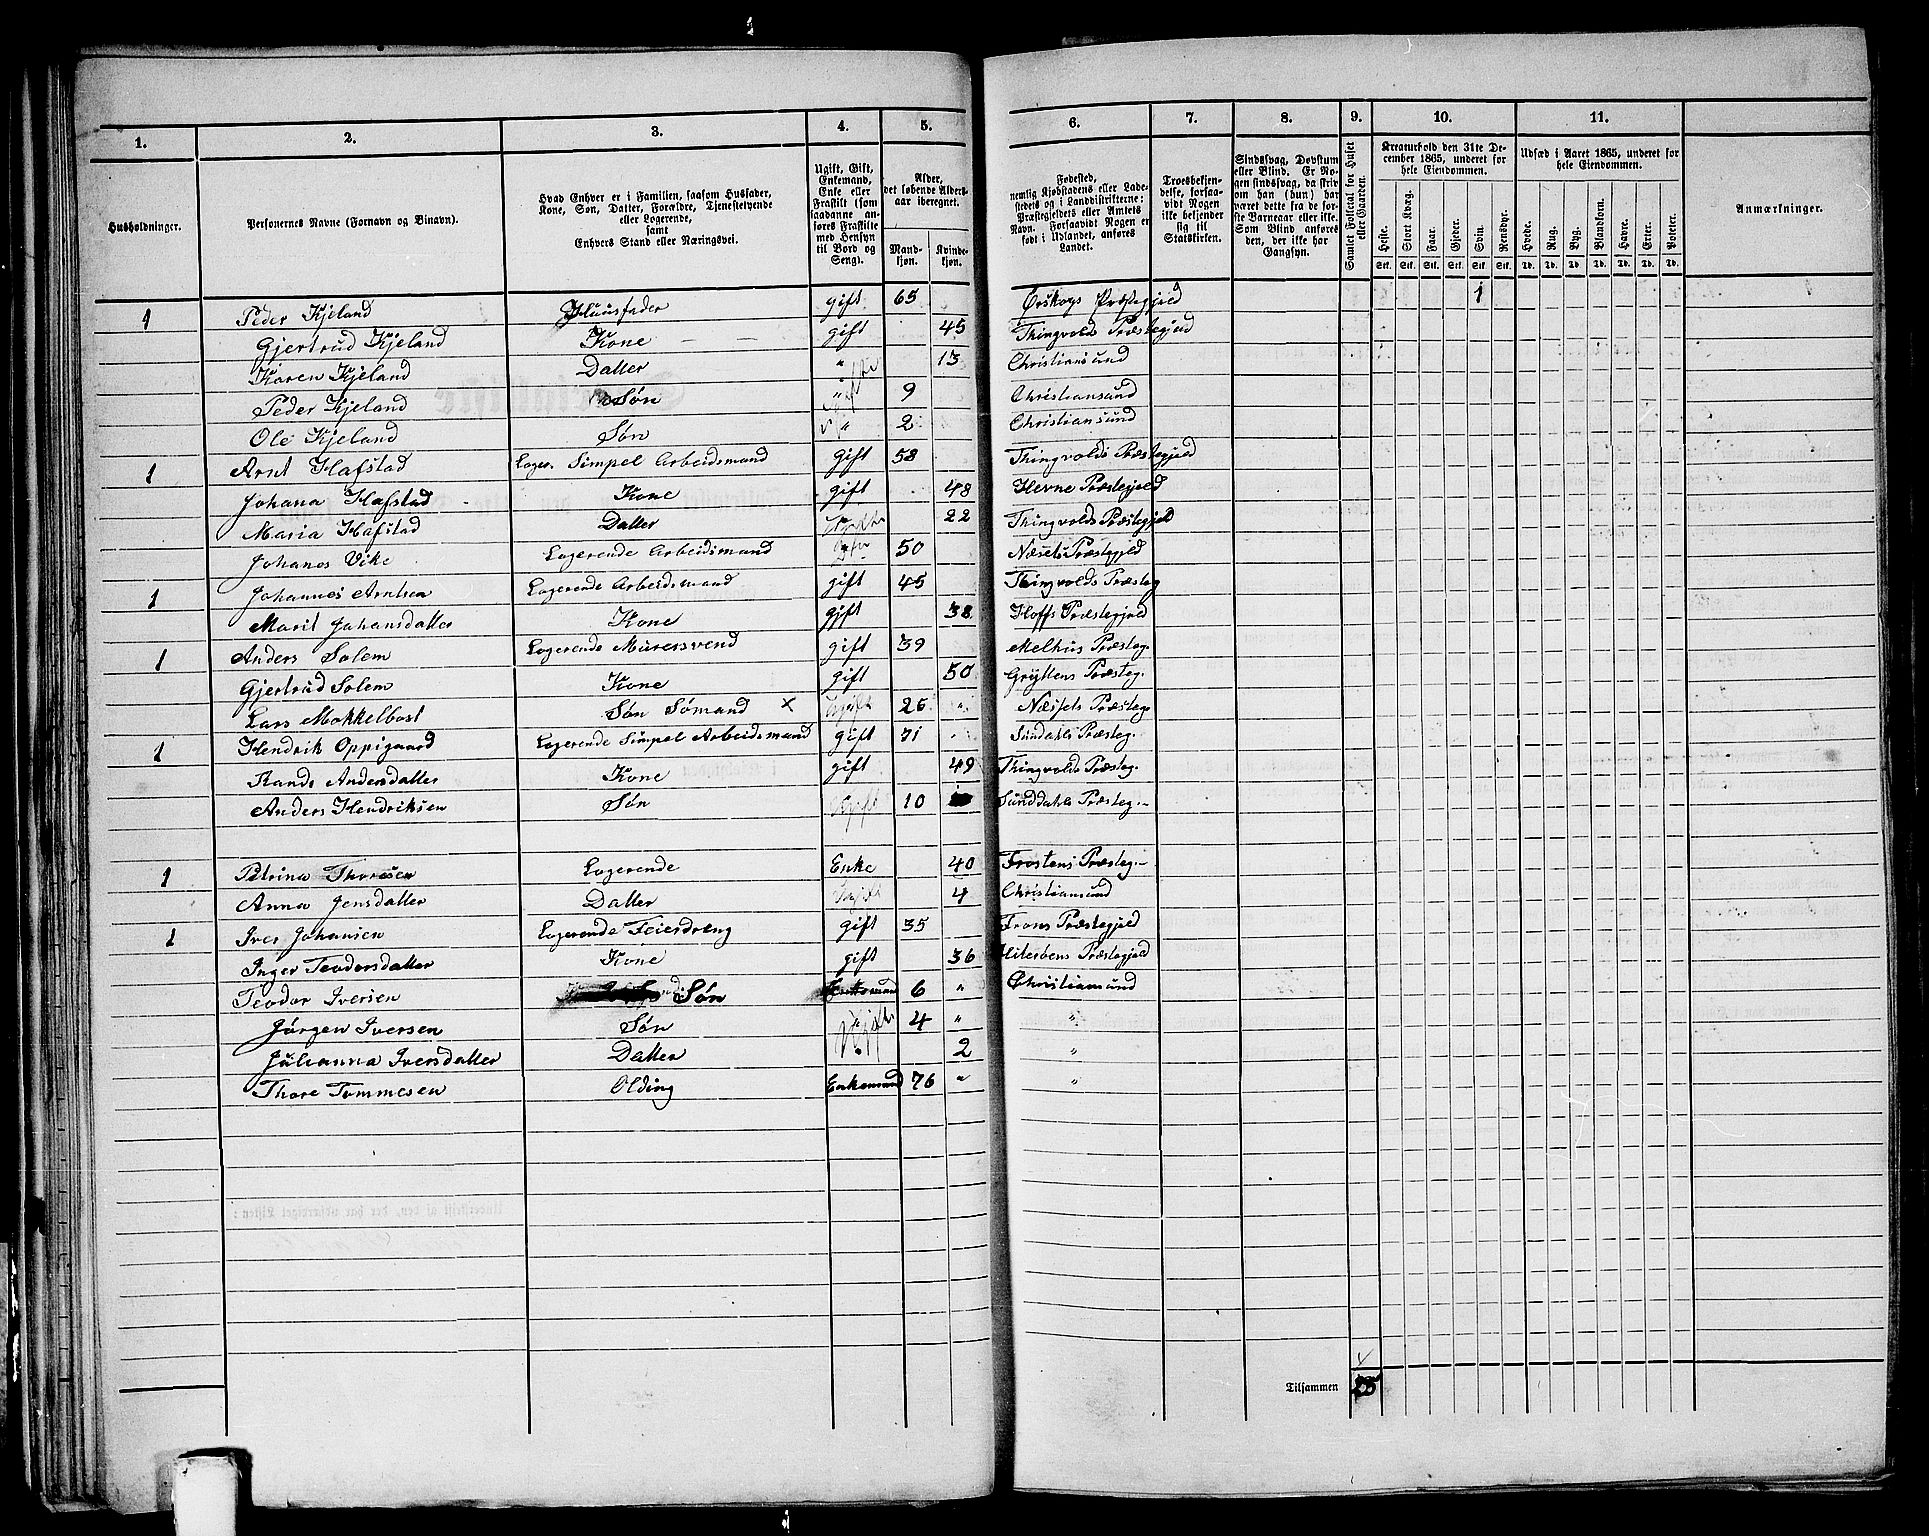 1. 2. 3. 4. 5. 6. 7. 8. 9. 10. 11.
Husholdninger.
Personernes Navne (Fornavn og Binavn).
Hvad Enhver er i Familien, saasom Husfader, Kone, Søn, Datter, Forældre, Tjenestetyende eller Logerende, samt Enhvers Stand eller Næringsvei.
Ugift, Gift, Enkemand, Enke eller Fraskilt (som saadanne anføres Fraskilte med Hensyn til Bord og Seng).
Alder, det løbende Aldersaar iberegnet.
Mandkjøn. Kvindekjøn.
Fødested, nemlig Kjøbstadens eller Ladestedets og i Landdistrikterne: Præstegjeldets eller Amtets Navn. Forsaavidt Nogen er født i Udlandet, anføres Landet.
Troesbekjendelse, forsaavidt Nogen ikke bekjender sig til Statskirken.
Sindssvag, Døvstum eller Blind. Er Nogen sindssvag, da skriv om han (hun) har været dette fra de første Barneaar eller ikke. Som Blind anføres den, der ikke har Gangsyn.
Samlet Folketal for Huset eller Gaarden.
Kreaturhold den 31te December 1865, underet for hele Eiendommen.
Heste. Stort Kvæg. Faar. Gjeder. Svin. Rensdyr.
Stk. Stk. Stk. Stk. Stk. Stk.
Udsæd i Aaret 1865, underet for hele Eiendommen.
Hvede. Rug. Byg. Blandkorn. Havre. Erter. Poteter.
Td. Td. Td. Td. Td. Td. Td.
Anmærkninger.
1 Peder Kjeland Huusfader gift 65 Ørskogs Præstegjeld 1
Gjertrud Kjeland Kone gift 45 Thingvolds Præstegjeld
Karen Kjeland Datter " 13 Christiansund
Peder Kjeland Søn " 9 Christiansund
Ole Kjeland Søn " 2 Christiansund
1 Arnt Hafstad Loger. Simpel Arbeidsmand gift 58 Thingvolds Præstegjeld
Johana Hafstad Kone gift 48 Hevne Præstegjeld
Maria Hafstad Datter 22 Thingvolds Præstegjeld
Johanes Vike Logerende Arbeidsmand 50 Næsets Præstegjeld
1 Johannes Arntsen Logerende Arbeidsmand gift 45 Thingvolds Præsteg
Marit Johansdatter Kone gift 38 Hoffs Præstegjeld
1 Anders Solem Logerende Murersvend gift 39 Melhus Præsteg.
Gjertrud Solem Kone gift 50 Gryttens Præsteg.
Lars Mokkelbost Søn Sømand × Ugift 26 " Næssets Præsteg
1 Hendrik Oppigaard Logerende Simpel Arbeidsmand gift 71 Sundahls Præsteg.
Randi Andersdatter Kone gift 49 Thingvolds Præsteg.
Anders Hendriksen Søn Ugift 10 Sunddahls Præsteg.
1 Petrina Thoresen Logerende Enke 40 Frostens Præsteg.
Anna Jensdatter Datter Ugift 4 Christiansund
1 Iver Johansen Logerende Feiesdreng gift 35 Præstegjeld
Inger Teodorsdatter Kone gift 36 Præstegjeld
Teodor Iversen Søn 6 " Christiansund
Jørgen Iversen Søn Ugift 4 " "
Julianna Iversdatter Datter " 2 "
Thore Tommesen Olding Enkemand 76 " "
Tilsammen 25